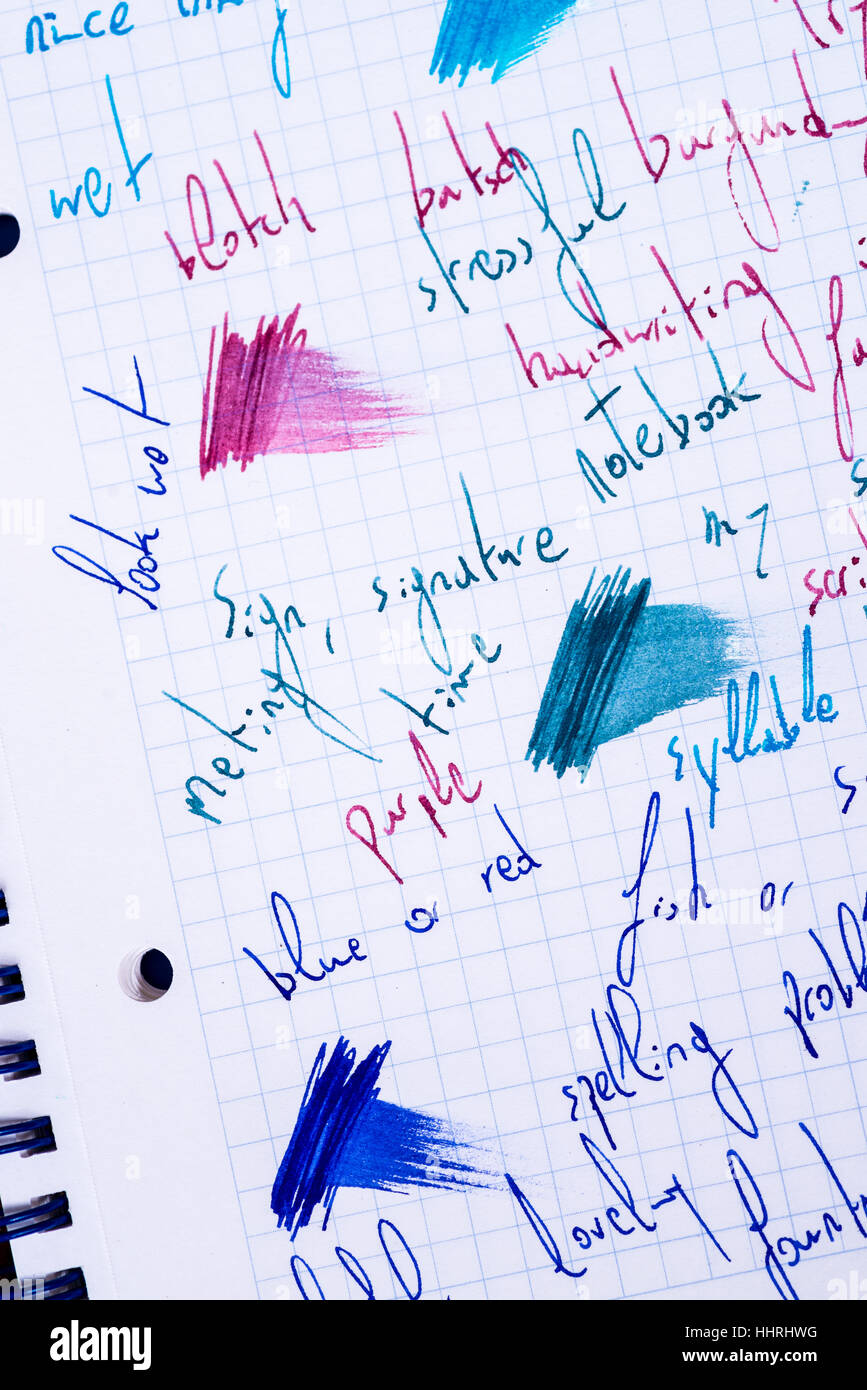 nince
wet
blotch
batsch
burgund
stressful
handwriting
notebook
look wet
my
sign, signature
meting time
purple
syllable
blue or red
fish or
spelling proble
lovely fount
alamy
Image ID: HHRHWG
www.alamy.com